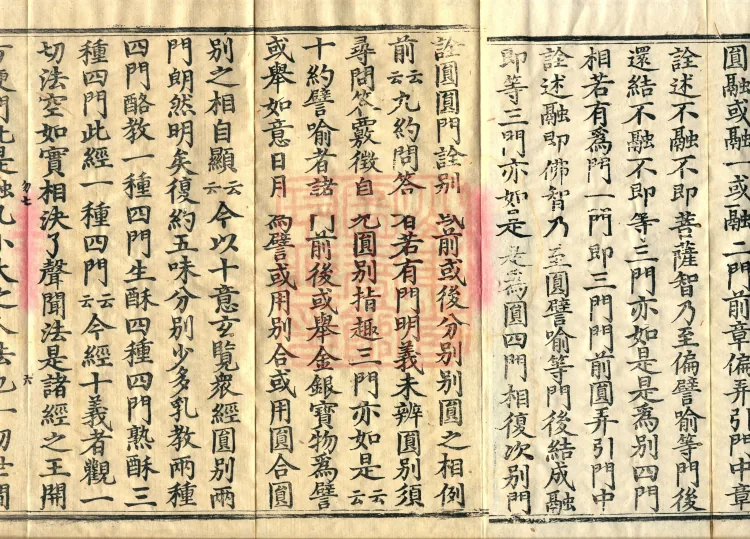 圓融或融一或融二門前章偏弄引門中章
詮述不融不即菩薩智乃至偏譬喻等門後
還結不融不即等三門亦如是是爲別四門
相若有爲門一門即三門門前圓弄引門中
詮述融即佛智乃至圓譬喻等門後結成融
即等三門亦如是是爲圓四門相復次別門
詮圓圓門詮別或前或後分別別圓之相例
前云云九約問答者若有門明義未辨圓別須
尋問答覈徵自見圓別指趣三門亦如是云云
十約譬喻者諸門前後或舉金銀寶物爲譬
或舉如意日月爲譬或用別合或用圓合圓
別之相自顯云云今以十意玄覽衆經圓別兩
門朗然明矣復約五味分別少多乳教兩種
四門酪教一種四門生酥四種四門熟酥三
種四門此經一種四門云云今經十義者觀一
切法空如實相決了聲聞法是諸經之王開
六
方便門此是融凡小大之人法也一切世間